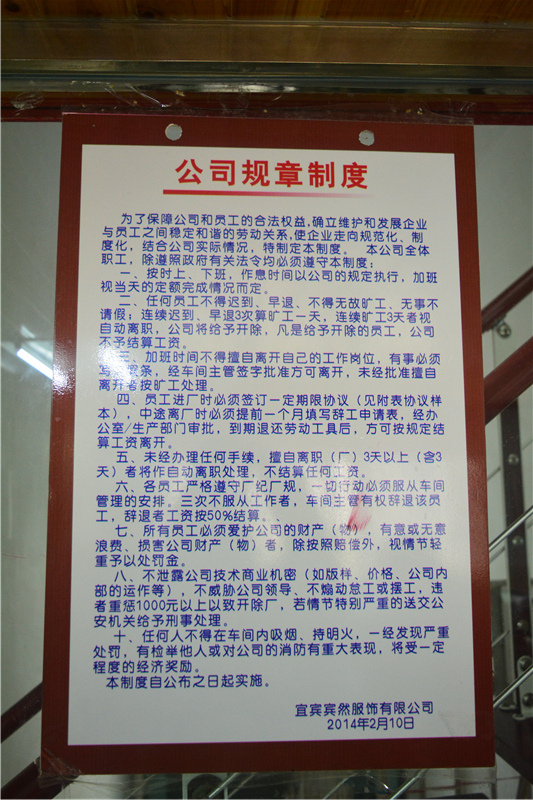 公司规章制度
为了保障公司和员工的合法权益,确立维护和发展企业
与员工之间稳定和谐的劳动关系,使企业走向规范化、制
度化，结合公司实际情况，特制定本制度。 本公司全体
职工，除遵照政府有关法令均必须遵守本制度：
一、按时上、下班，作息时间以公司的规定执行，加班
视当天的定额完成情况而定。
二、任何员工不得迟到、早退、不得无故旷工、无事不
请假；连续迟到、早退3次算旷工一天，连续旷工3天者视
自动离职，公司将给予开除，凡是给予开除的员工，公司
不予结算工资。
三、加班时间不得擅自离开自己的工作岗位，有事必须
写 条，经车间主管签字批准方可离开，未经批准擅自
离开者按旷工处理。
四、员工进厂时必须签订一定期限协议（见附表协议样
本），中途离厂时必须提前一个月填写辞工申请表，经办
公室/生产部门审批，到期退还劳动工具后，方可按规定结
算工资离开。
五、未经办理任何手续，擅自离职（厂）3天以上（含3
天）者将作自动离职处理，不结算任何工资。
六、各员工严格遵守厂纪厂规，一切行动必须服从车间
管理的安排。三次不服从工作者，车间主管有权辞退该员
工，辞退者工资按50%结算。
七、所有员工必须爱护公司的财产（物），有意或无意
浪费、损害公司财产（物）者，除按照赔偿外，视情节轻
重予以处罚金。
八、不泄露公司技术商业机密（如版样、价格、公司内
部的运作等），不威胁公司领导、不煽动怠工或摆工，违
者重惩1000元以上以致开除厂，若情节特别严重的送交公
安机关给予刑事处理。
十、任何人不得在车间内吸烟、持明火，一经发现严重
处罚，有检举他人或对公司的消防有重大表现，将受一定
程度的经济奖励。
本制度自公布之日起实施。
宜宾宾然服饰有限公司
2014年2月10日